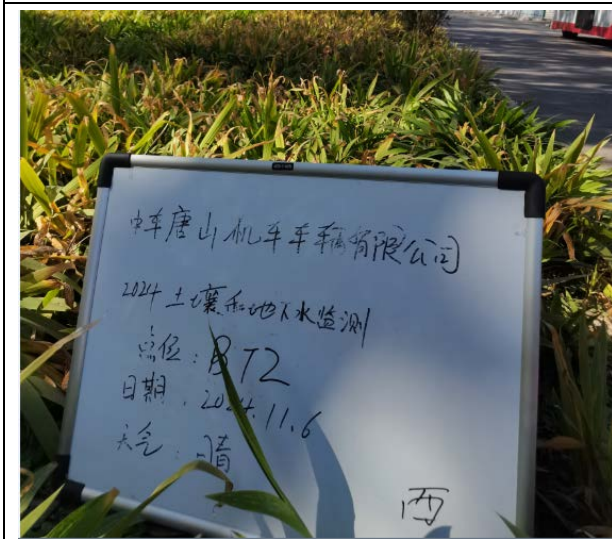 中车唐山机车车辆有限公司
2024土壤和地下水监测
点位：BT2
日期：2024.11.6
天气：晴
西